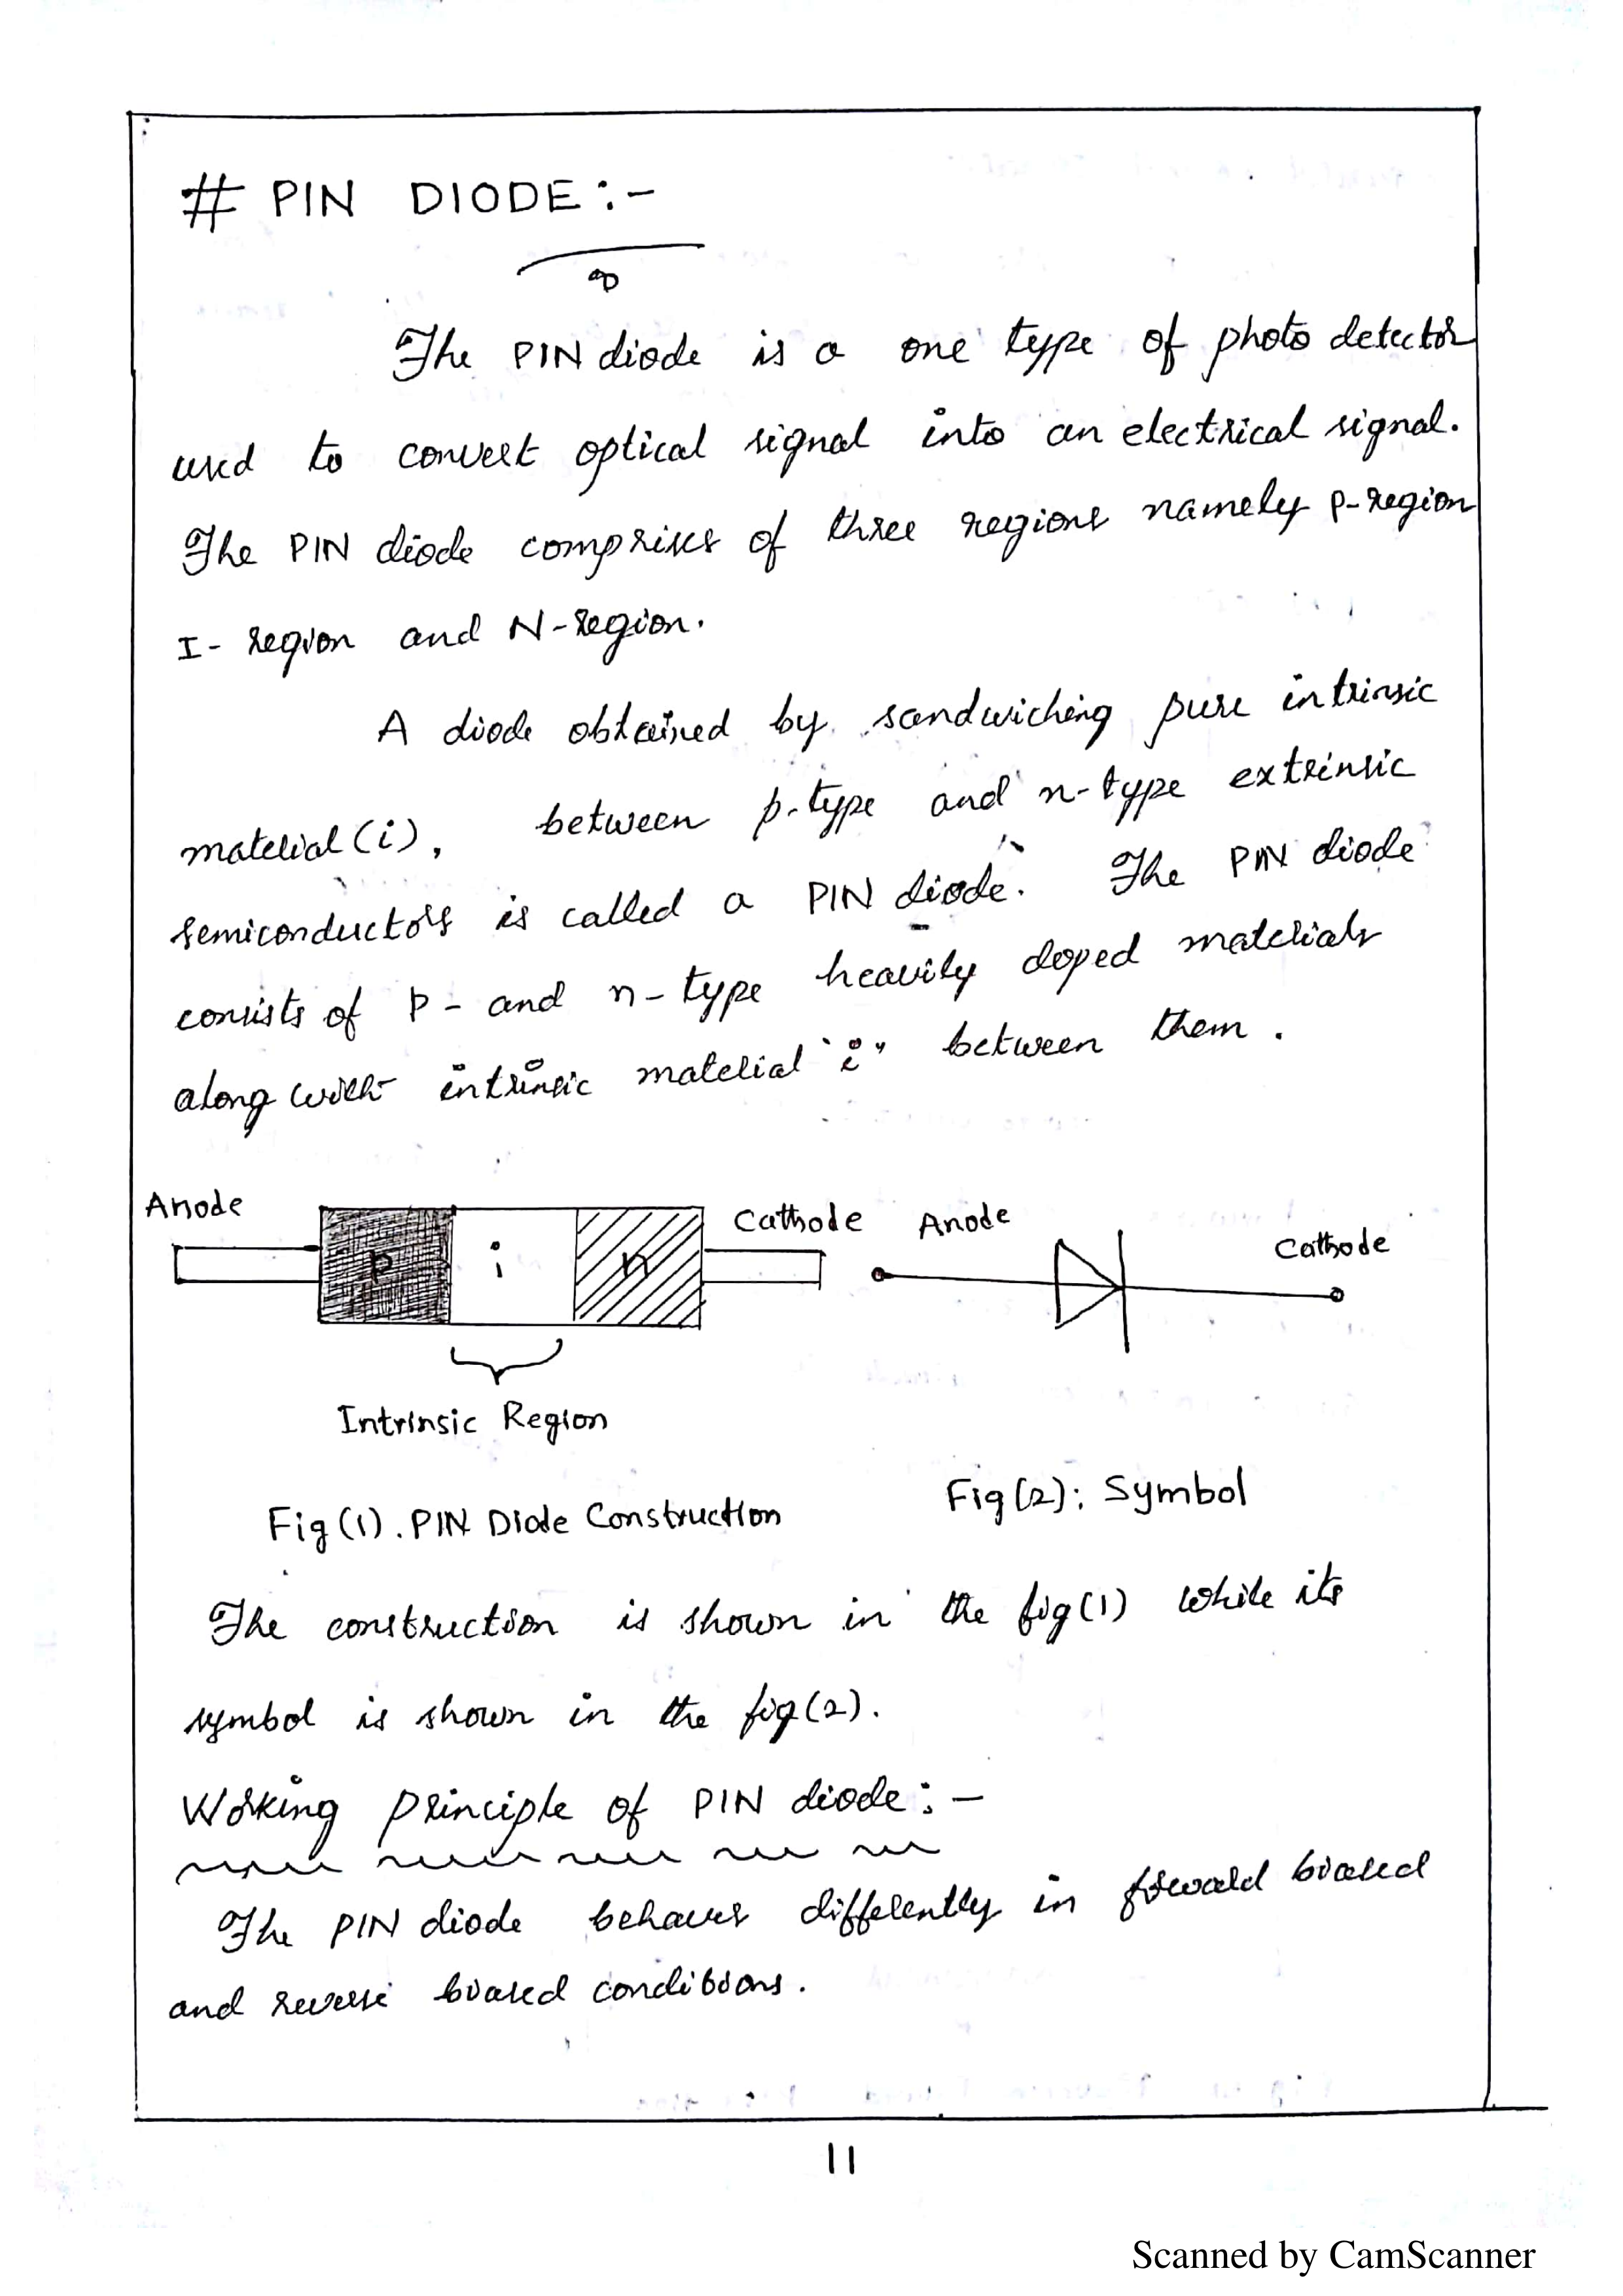 # PIN DIODE:-
The PIN diode is a one type of photo detector
used to convert optical signal into an electrical signal.
The PIN diode comprises of three regions namely P-region
I- region and N-region.
A diode obtained by sandwiching pure intrinsic
material (i), between p-type and n-type extrinsic
semiconductors is called a PIN diode. The PIN diode
consists of P- and n-type heavily doped materials
along with intrinsic material "i" between them.
Anode
p
i
n
Cathode
Anode
Cathode
Intrinsic Region
Fig(1). PIN Diode Construction
Fig(2): Symbol
The construction is shown in the fig(1) while its
symbol is shown in the fig(2).
Working principle of PIN diode:-
The PIN diode behaves differently in forward biased
and reverse biased conditions.
11
Scanned by CamScanner